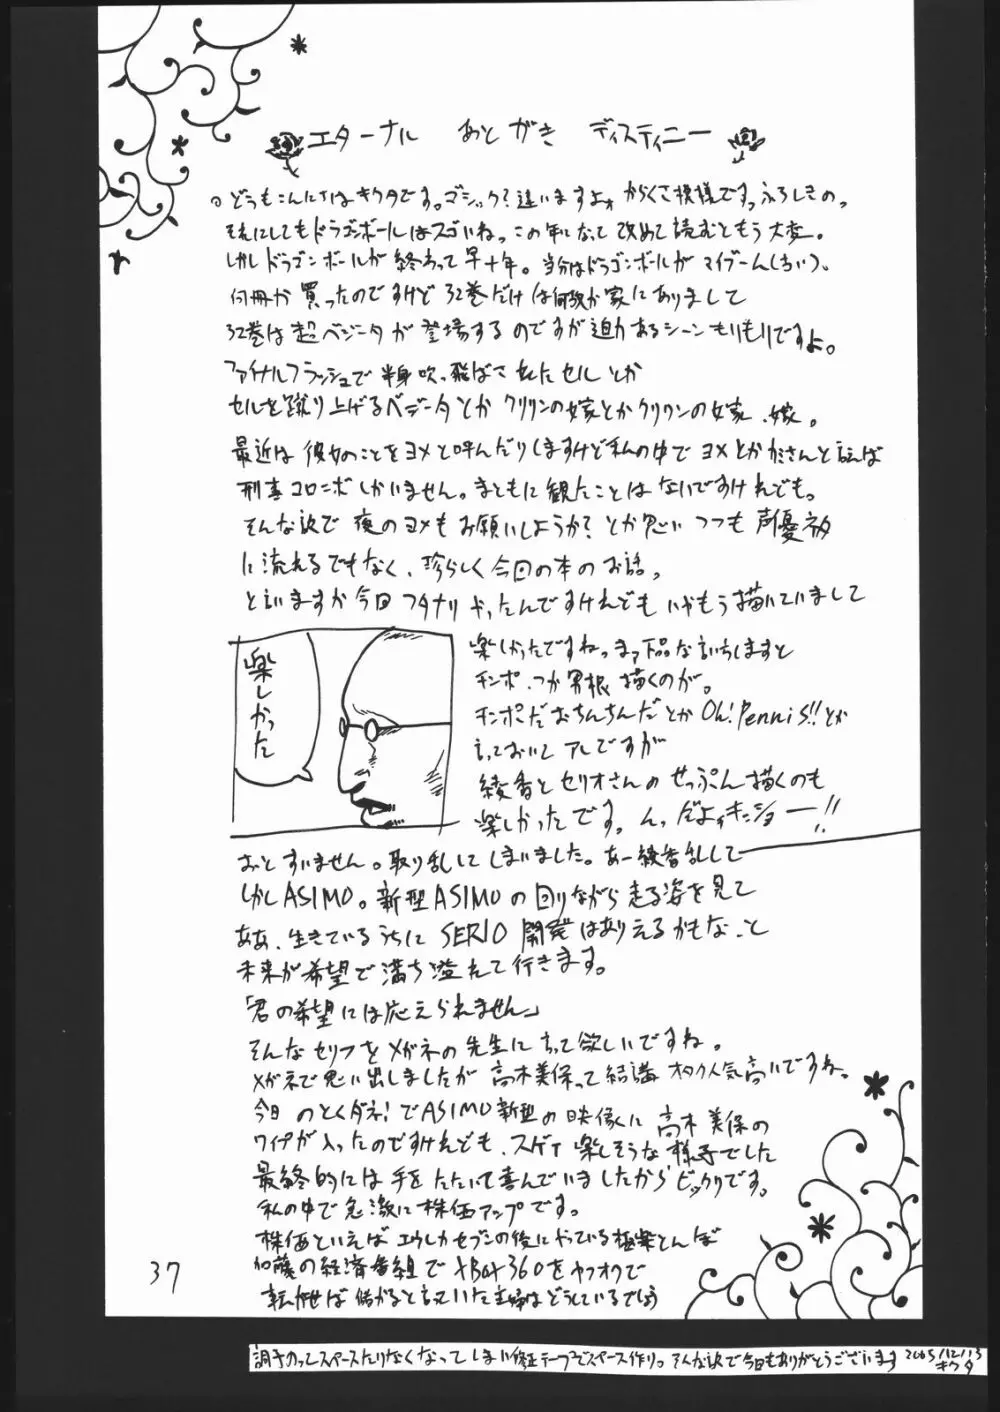 エターナル あとがき ディスティニー
。どうもこんにちはキクタです。ゴシック?違いますよォ からくさ模様です。ふろしきの。
それにしてもドラゴンボールはスゴいね。この年になって改めて読むともう大変。
しかしドラゴンボールが終わって早十年。当分はドラゴンボールがマイブーム(ちい)。
何冊か買ったのですけど32巻だけは何故か家にありまして
32巻は超ベジータが登場するのですが迫力あるシーンもりもりですよ。
ファイナルフラッシュで半身吹っ飛ばされたセルとか
セルを蹴り上げるベジータとかクリリンの嫁とかクリリンの嫁、嫁。
最近は彼女のことをヨメと呼んだりしますけど私の中でヨメとかカミさんと言えば
刑事コロンボしかいません。まともに観たことはないですけれども。
そんな訳で夜のヨメもお願いしようか?とか思いつつも声優ネタ
に流れるでもなく、珍らしく今回の本のお話。
と言いますか今回フタナリやったんですけれどもいやもう描いていまして
楽しかった
楽しかったですね。まァ下品な言いをしますと
チンポ、つか男根描くのが。
チンポだおちんちんだとか Oh! Pennis!! とか
言っておいてアレですが
綾香とセリオさんのせっぷん描くのも
楽しかったです。んっだよォキンショー!!
おとすいません。取り乱してしまいました。あー綾香乱して
しかしASIMO。新型ASIMOの回りながら走る姿を見て
ああ、生きているうちに SERIO 開発はありえるかもな、と
未来が希望で満ち溢れて行きます。
「君の希望には応えられません。」
そんなセリフをメガネの先生に言って欲しいですね。
メガネで思い出しましたが高木美保って結構オタク人気高いですね。
今日のとくダネ!でASIMO新型の映像に高木美保の
ワイプが入ったのですけれども、スゲェ楽しそうな様子でした
最終的には手をたたいて喜んでいましたからビックリです。
私の中で急激に株価アップです。
株価といえばエウレカセブンの後にやっている極楽とんぼ
加藤の経済番組でXBox360をヤフオクで
転売せば儲かると言っていた主婦はどうしているでしょう
37
調子のってスペースたりなくなってしまい修正テープでスペース作り。そんな訳で今日もありがとうございます 2005/12/13
キクタ